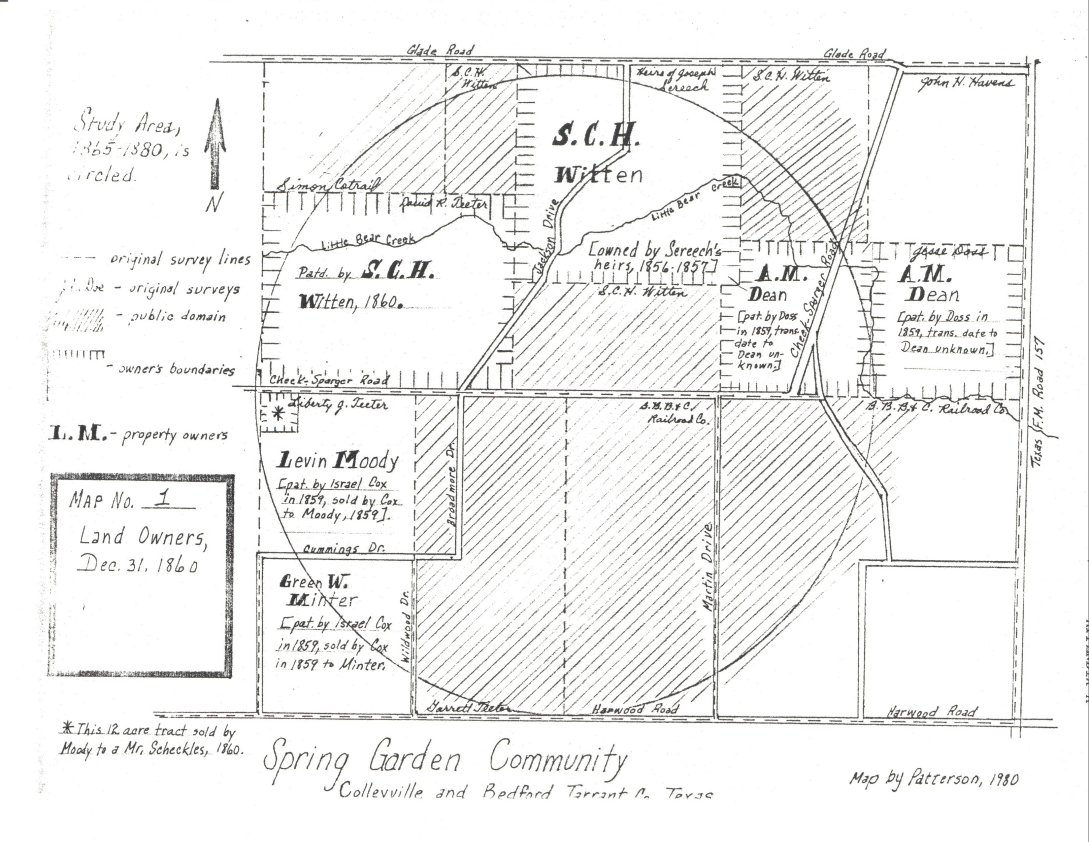 Glade Road
Glade Road
S.C.H.
Witten
Heirs of Joseph
Sereech
S.C.H. Witten
John H. Havens
Study Area,
1865-1880, is
circled.
N
S.C.H.
Witten
Simon Cotrail
David R. Teeter
Little Bear Creek
Little Bear Creek
Jackson Drive
[owned by Sereech's
heirs, 1856-1857]
S.C.H. Witten
Patd. by S.C.H.
Witten, 1860.
A.M.
Dean
[pat. by Doss
in 1859, trans.
date to
Dean un-
known.]
Cheek-Sparger Road
Jesse Doss
A.M.
Dean
[pat. by Doss in
1859, trans. date to
Dean unknown.]
--- original survey lines
J. Doe - original surveys
- public domain
- owner's boundaries
L.M. - property owners
Cheek-Sparger Road
* Liberty G. Teeter
B.B.B.& C.
Railroad Co.
B.B.B.& C. Railroad Co.
Texas F.M. Road 157
Levin Moody
[pat. by Israel Cox
in 1859, sold by Cox
to Moody, 1859].
Broadmore Dr.
Cummings Dr.
Martin Drive
Green W.
Minter
[pat. by Israel Cox
in 1859, sold by Cox
in 1859 to Minter.
Wildwood Dr.
Map No. 1
Land Owners,
Dec. 31, 1860
Garrett Teeter
Harwood Road
Harwood Road
* This 12 acre tract sold by
Moody to a Mr. Scheckles, 1860.
Spring Garden Community
Colleyville and Bedford Tarrant Co. Texas
Map by Patterson, 1980